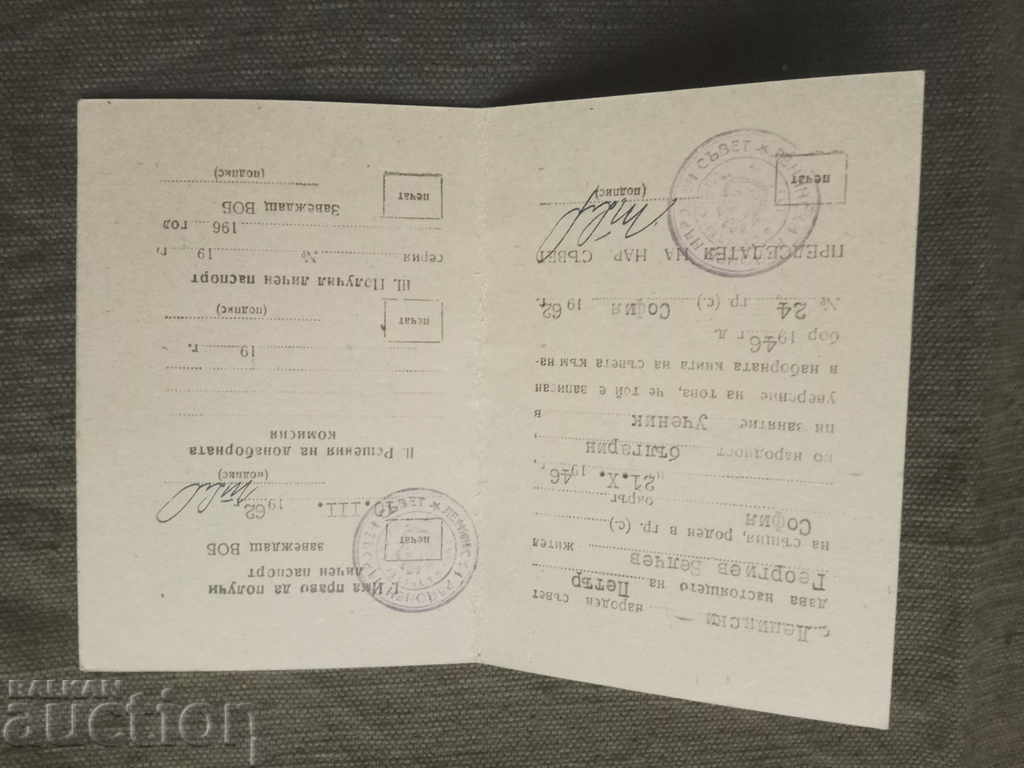 с. Ленински
народен съвет
дава настоящето на Петър
Георгиев Велчев жител
на същия, роден в гр. (с)
София окръг
"21.X. 1946 г.
ко народност българин,
пи занятие ученик в
уверение на това, че той е записан
в наборната книга на съвета към на-
бор 1946 г д.
№ 24 гр (с.) София 1962 г.
ПРЕДСЕДАТЕЛ НА НАР СЪВЕТ
(подпис)
печат
СЪВЕТ ★
I. Има право да получи
личен паспорт
завеждащ ВОБ
печат
СЪВЕТ ★
III. 1962
(подпис)
II. Решения на донаборната
комисия
19 г.
печат
(подпис)
III. Получил личен паспорт
серия № 19 г,
196 год
Завеждащ ВОБ
печат
(подпис)
BALKAN
auction